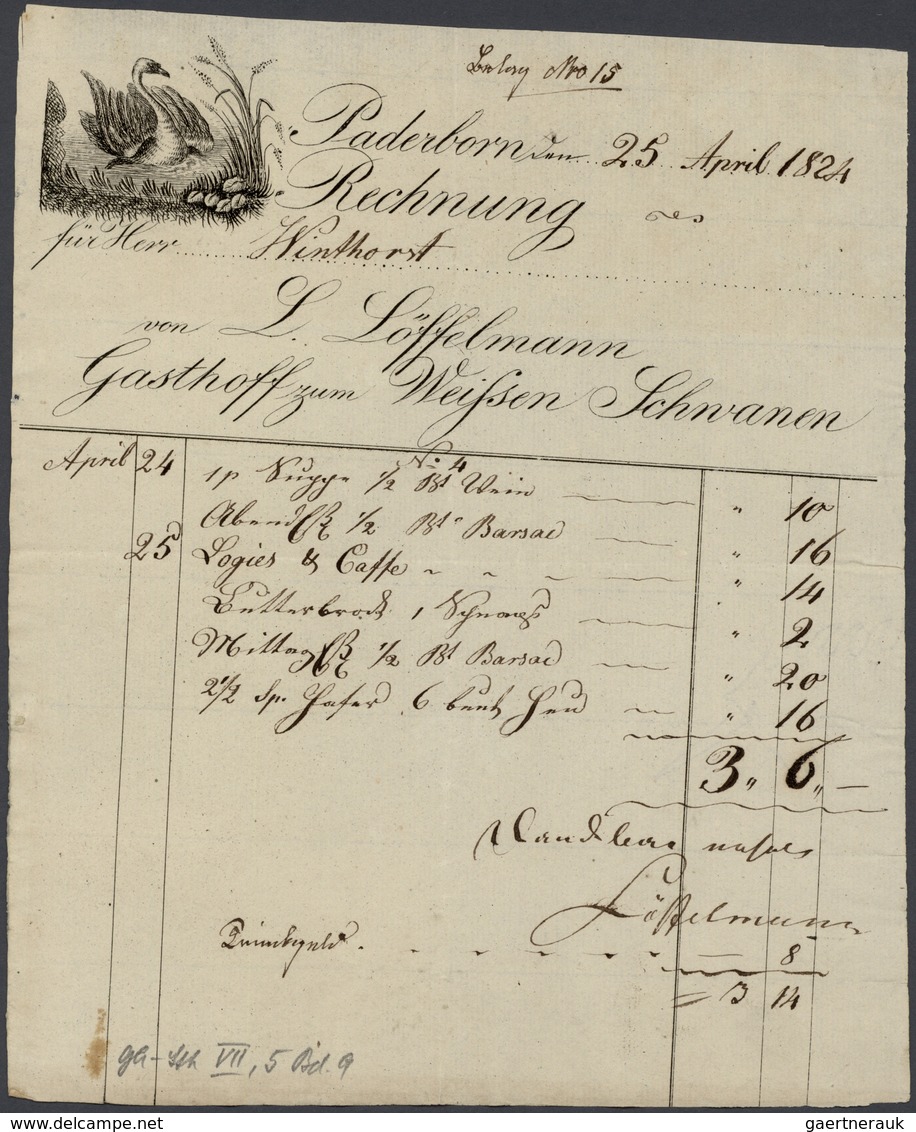 Belag Nro 15
Paderborn den 25 April 1824
Rechnung
für Herr Winthorst
von L. Löffelmann
Gasthoff zum Weißen Schwanen
April 24 1 p Suppe 1/2 Bt No. 4 Wein " 10
Abend 1/2 Bt Barsac " 16
25 Logies & Caffe " 14
Butterbrod, 1 Schnaps " 2
Mittag 1/2 Bt Barsac " 20
2 1/2 Sp. Hafer 6 bunt Heu " 16
3 " 6 " —
Löffelmann
Trinkgeld. — 8
= 3 14
VII, 5 Bd. 9
delcampe.net
gaertnerauk